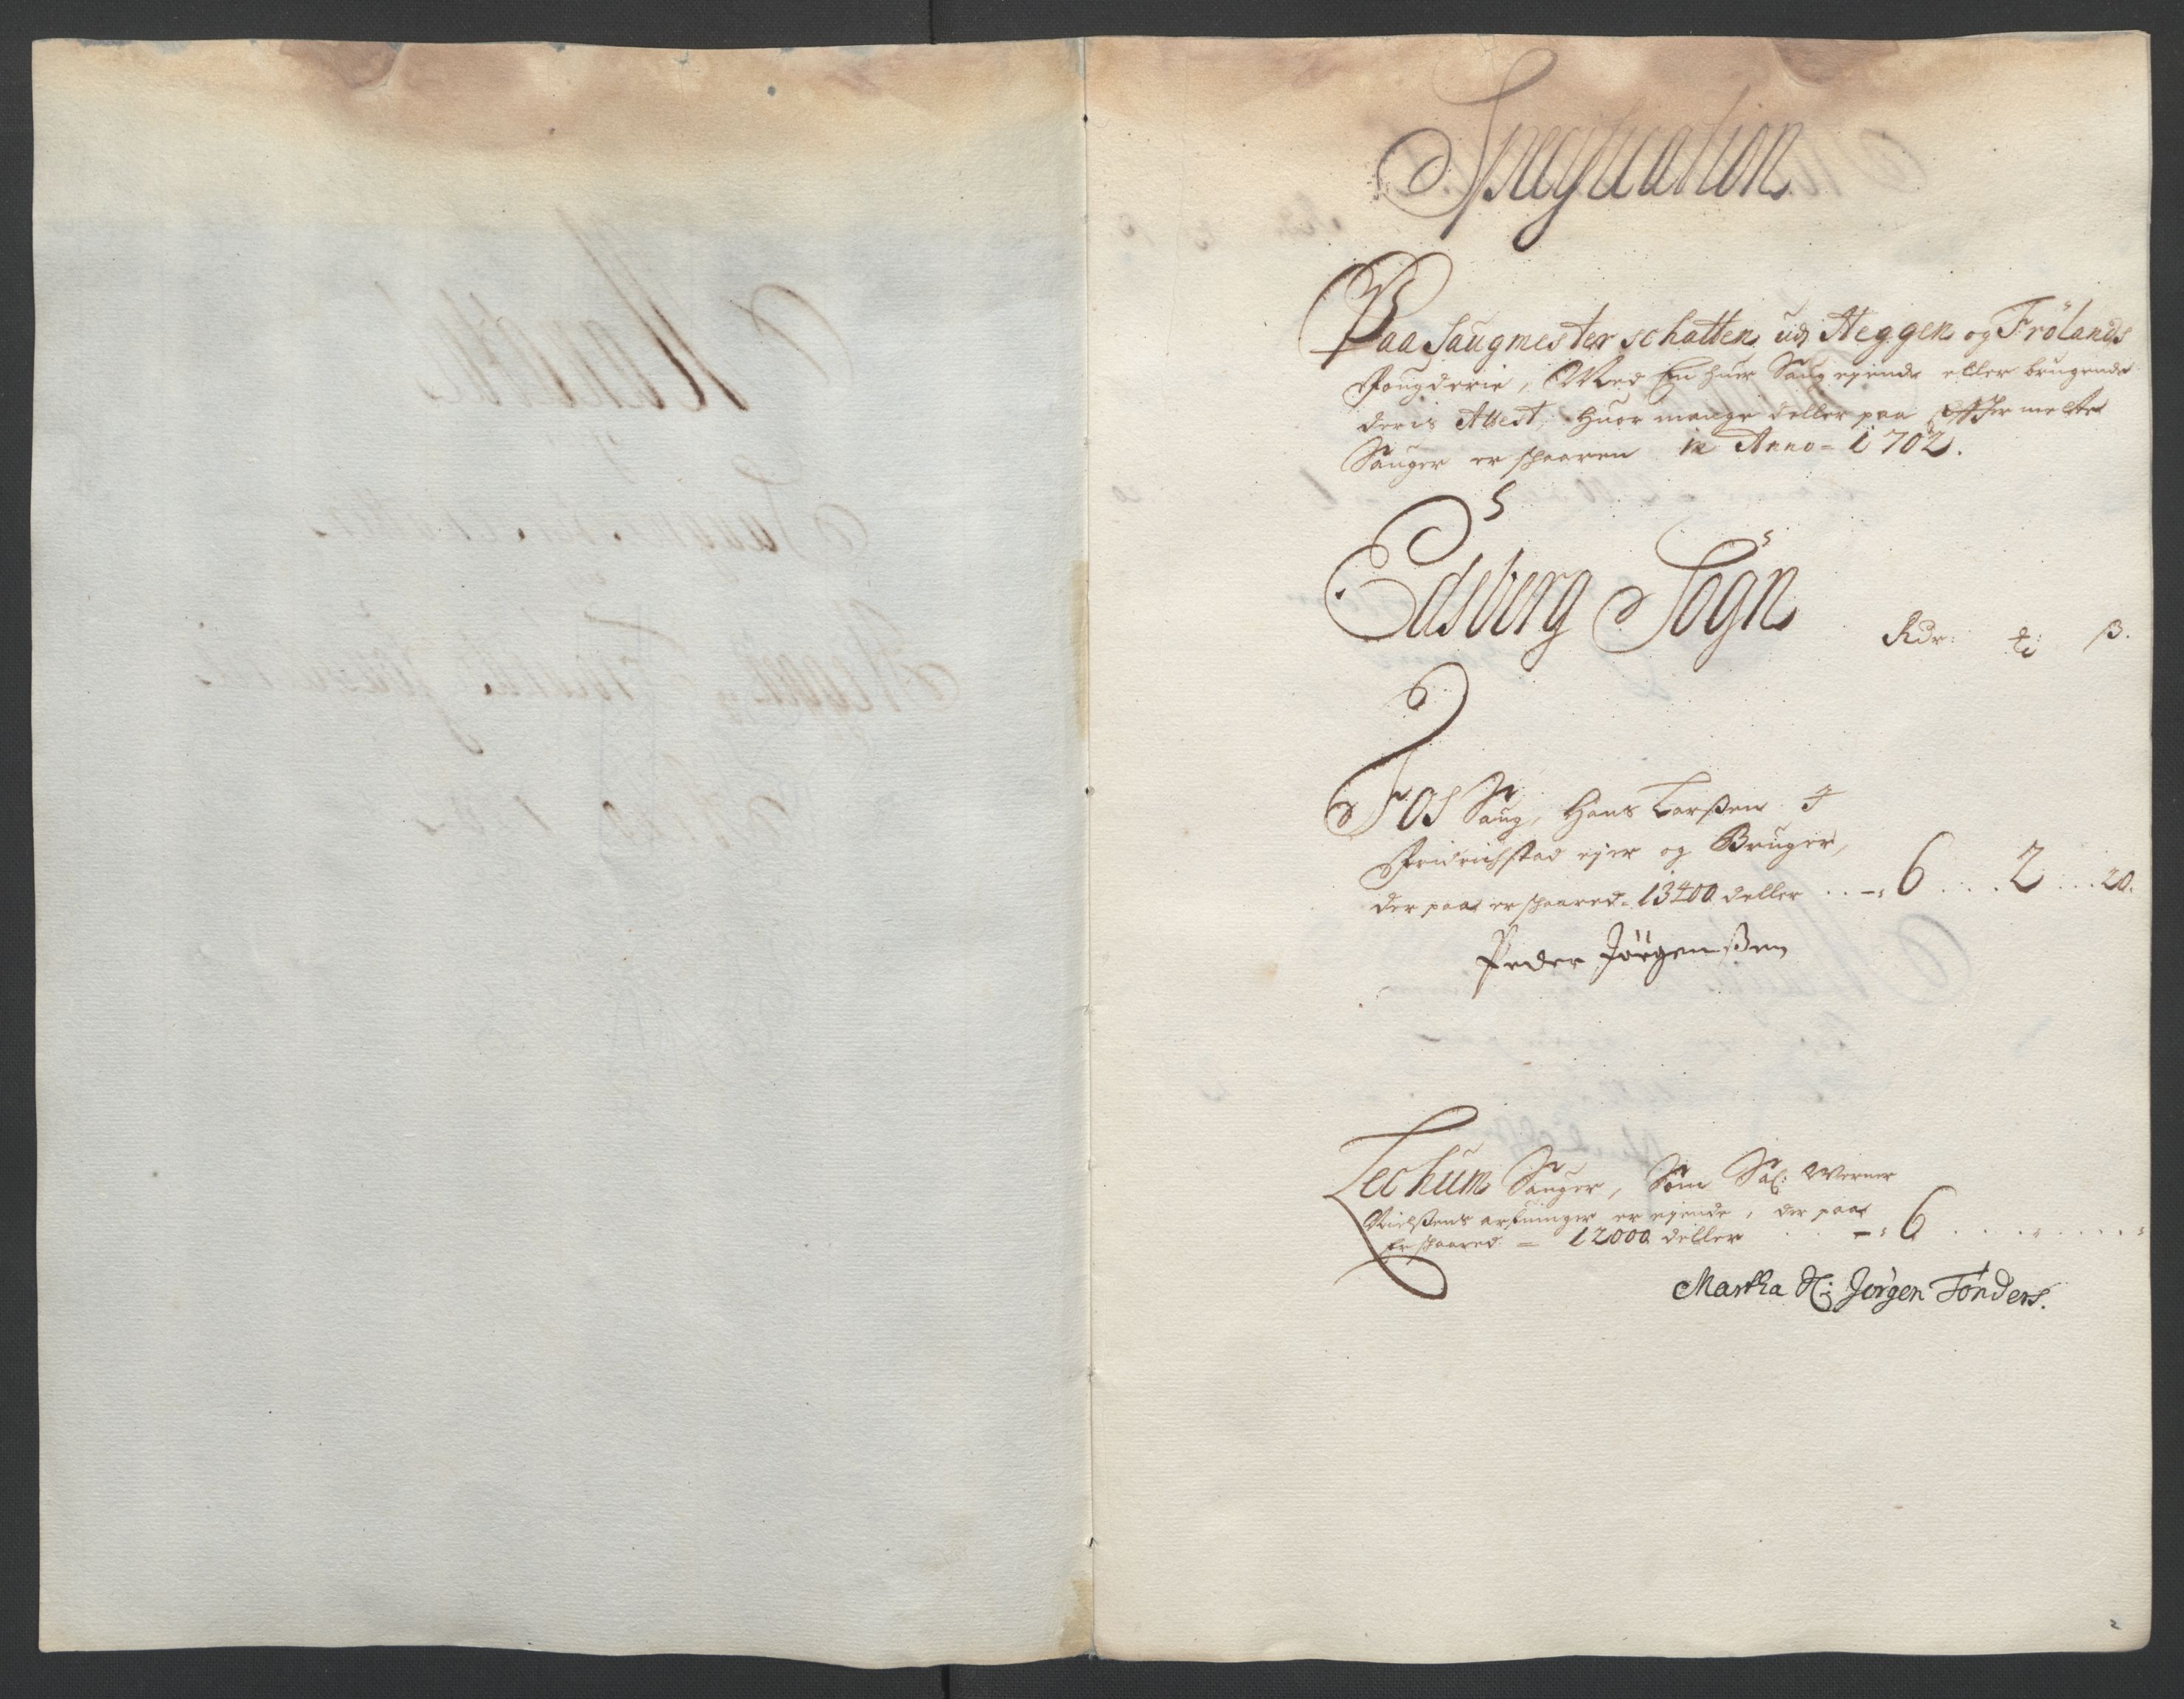 Specification
Paa Saugmester schatten udj Heggen og Frölands
Fougderie, Med En huer Saug ejende eller brugende
deris Attest, huor mange deller paa Effter melte
Sauger er skaaren in Anno = 1702.
Edsberg Sogn
Rdr: ß.
Fos Saug, Hans Larßen i
Fridrichstad ejer og Bruger,
der paa er skaared = 13400 deller 6 2 20.
Peder Jörgenßen
Lechum Sauger, Som Sal: Werner
Nielßens arfuinger er ejende, der paa
Er skaared = 12000 deller 6
Martha Jörgen Tönders.
2